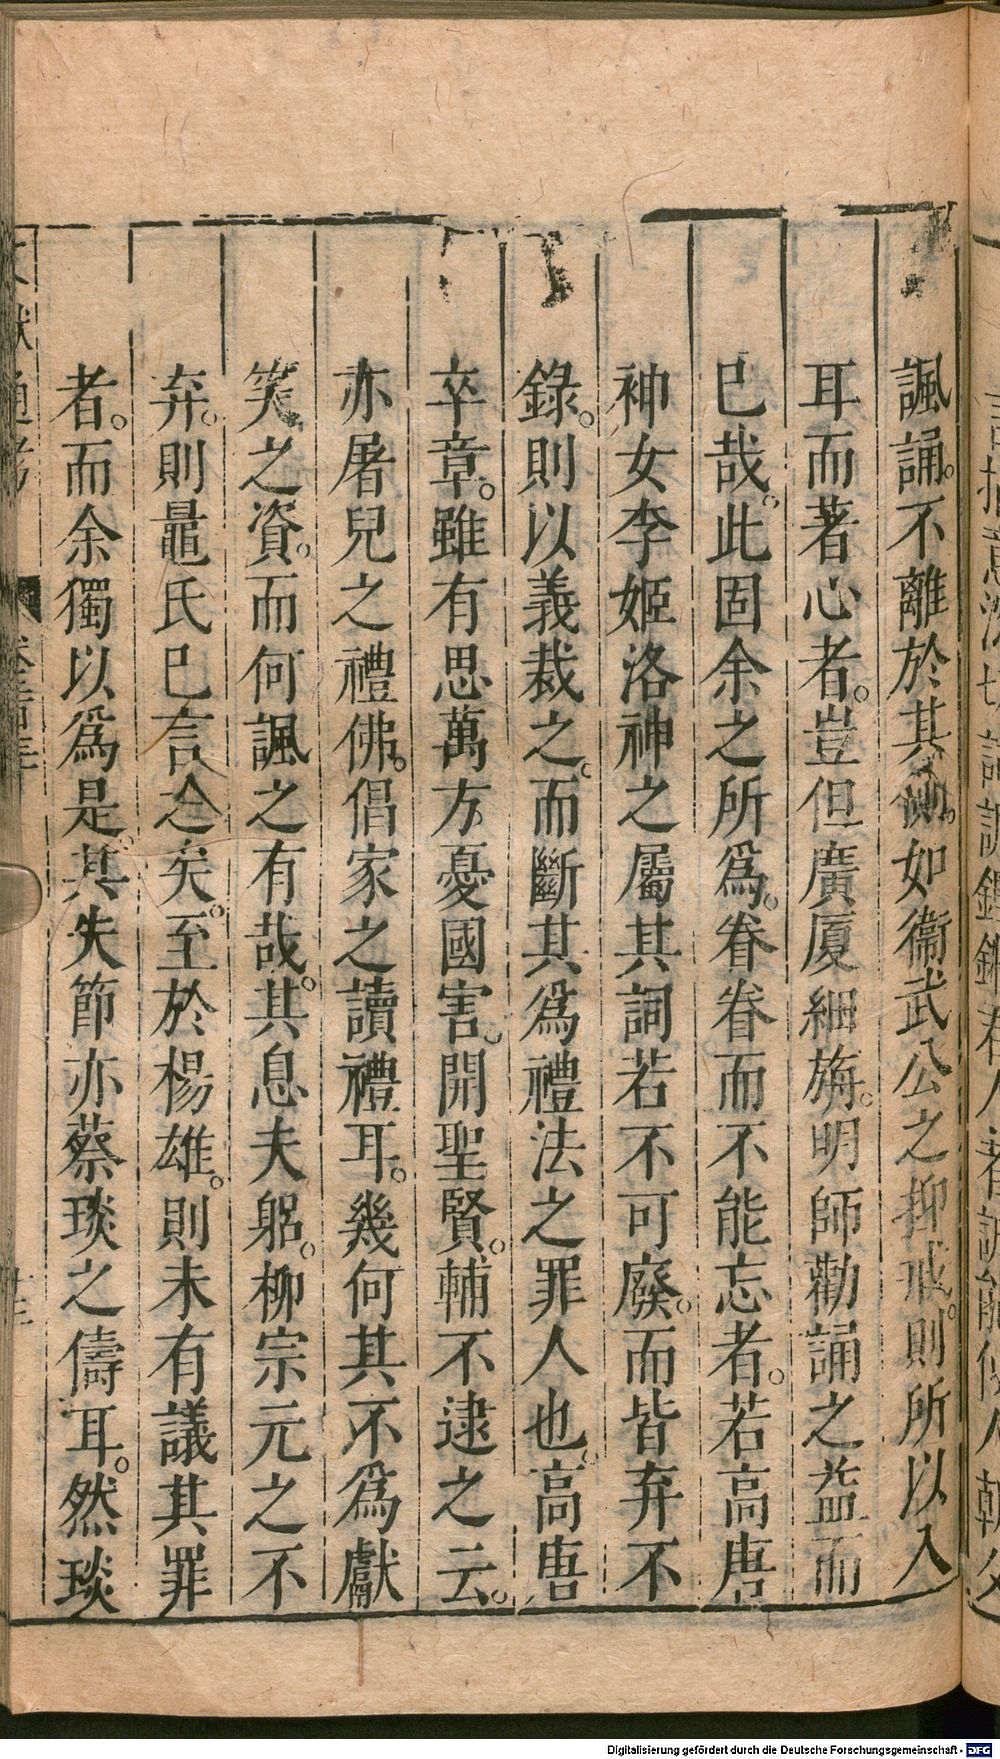 諷誦。不離於其側。如衞武公之抑戒。則所以入
耳而著心者。豈但廣厦細旃。明師勸誦之益而
已哉。此固余之所爲。眷眷而不能忘者。若高唐
神女李姬洛神之屬其詞若不可廢。而皆弃不
錄。則以義裁之。而斷其爲禮法之罪人也。高唐
卒章。雖有思萬方憂國害。開聖賢。輔不逮之云。
亦屠兒之禮佛。倡家之讀禮耳。幾何其不爲獻
笑之資。而何諷之有哉。其息夫躬。柳宗元之不
弃。則鼂氏已言之矣。至於楊雄。則未有議其罪
者。而余獨以爲是。其失節亦蔡琰之儔耳。然琰
文獻通考
卷二百三十
Digitalisierung gefördert durch die Deutsche Forschungsgemeinschaft - DFG